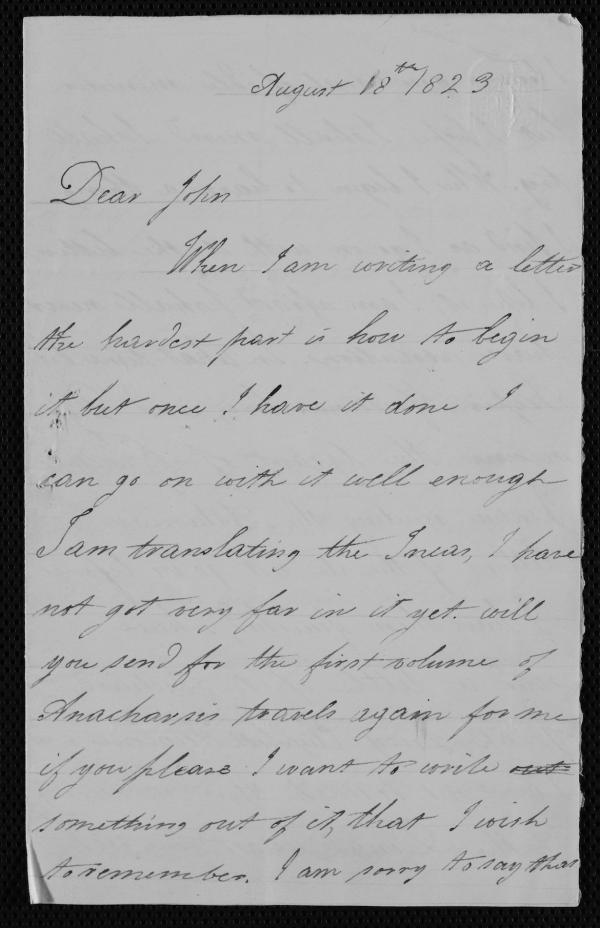 August 18th 1823
Dear John
When I am writing a letter
the hardest part is how to begin
it, but once I have it done I
can go on with it well enough
I am translating the Incas, I have
not got very far in it yet. will
you send for the first volume of
Anacharsis travels again for me
if you please I want to write out
something out of it, that I wish
to remember. I am sorry to say that